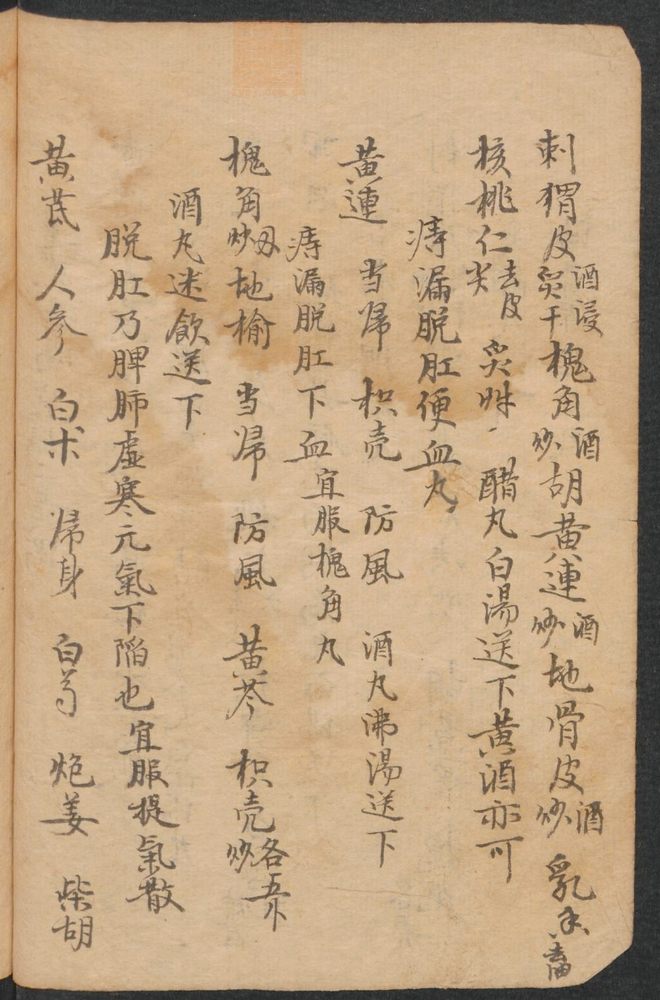 刺猬皮酒浸炙干槐角酒炒胡黄連酒炒地骨皮酒炒乳香
核桃仁去皮尖炙 醋丸白湯送下黄酒亦可
痔漏脱肛便血丸
黄連 当归 枳壳 防風 酒丸沸湯送下
痔漏脱肛下血宜服槐角丸
槐角炒地榆 当归 防風 黄芩 枳壳炒各
酒丸迷飲送下
脱肛乃脾肺虚寒元氣下陷也宜服提氣散
黄芪 人参 白术 归身 白芍 炮姜 柴胡